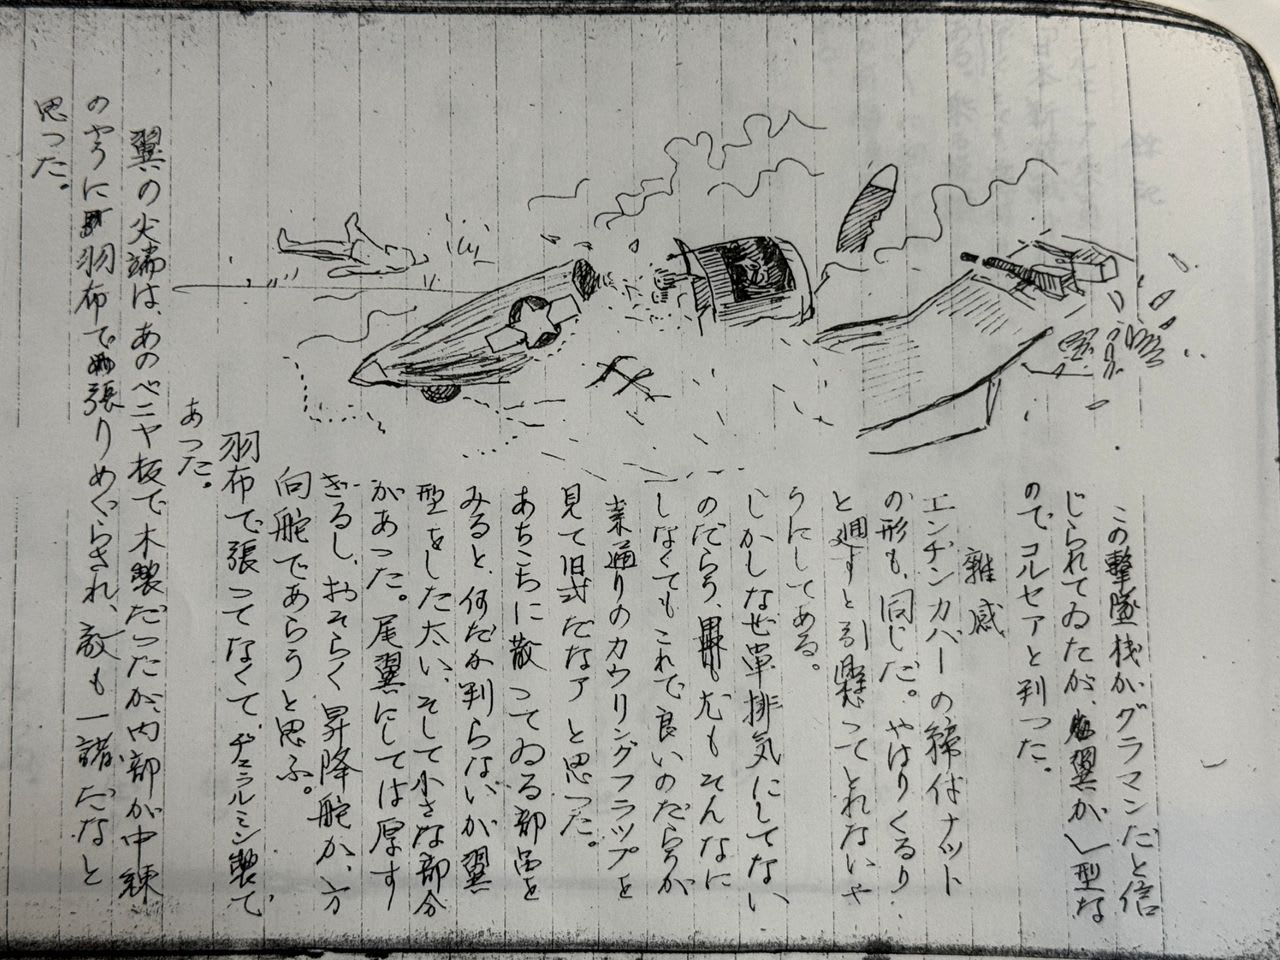 この撃墜機がグラマンだと信
じられてゐたが、翼が 型な
ので、コルセアと判つた。
雜感
エンヂンカバーの締付ナット
の形も、同じだ。やはりくるり
と廻すと引懸つてとれないや
うにしてある。
しかしなぜ單排気にしてない
のだらう、尤もそんなに
しなくてもこれで良いのだらうが
通りのカウリングフラップを
見て旧式だなアと思つた。
あちこちに散つてゐる部品を
みると、何だか判らないが翼
型をした太い、そして小さな部分
があつた。尾翼にしては厚す
ぎるし、おそらく昇降舵か、方
向舵であらうと思ふ。
羽布で張つてなくて、ヂュラルミン製で
あつた。
翼の尖端は、あのベニヤ板で木製だつたが、内部が中練
のやうに羽布で張りめぐらされ、敵も一諸だなと
思つた。